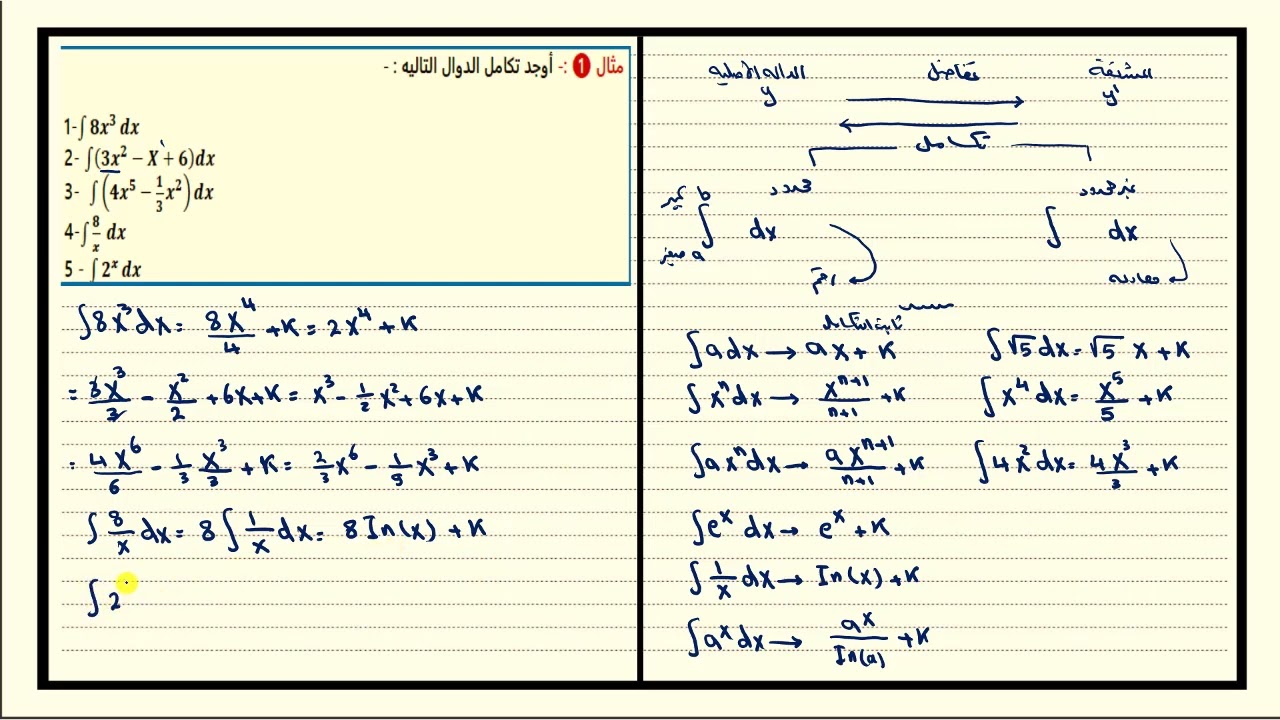 مثال 1 :- أوجد تكامل الدوال التاليه : -
1-∫ 8x³ dx
2- ∫(3x² − X + 6)dx
3- ∫(4x⁵ − 1/3 x²) dx
4-∫ 8/x dx
5 - ∫ 2ˣ dx
∫8x³dx = 8x⁴/4 + K = 2x⁴ + K
= 3x³/3 - x²/2 + 6x + K = x³ - 1/2 x² + 6x + K
= 4x⁶/6 - 1/3 x³/3 + K = 2/3 x⁶ - 1/9 x³ + K
∫ 8/x dx = 8 ∫ 1/x dx = 8 In(x) + K
∫ 2
المشتقة تفاضل الداله الأصليه
y' y
تكامل
غير محدود محدود
كبير b
∫ dx ∫ dx
صغير a
معادله رقم
ثابت التكامل
∫a dx → ax + K ∫√5 dx = √5 x + K
∫xⁿdx → xⁿ⁺¹/n+1 + K ∫x⁴ dx = x⁵/5 + K
∫axⁿdx → axⁿ⁺¹/n+1 + K ∫4x²dx = 4x³/3 + K
∫eˣ dx → eˣ + K
∫ 1/x dx → In(x) + K
∫aˣ dx → aˣ/In(a) + K